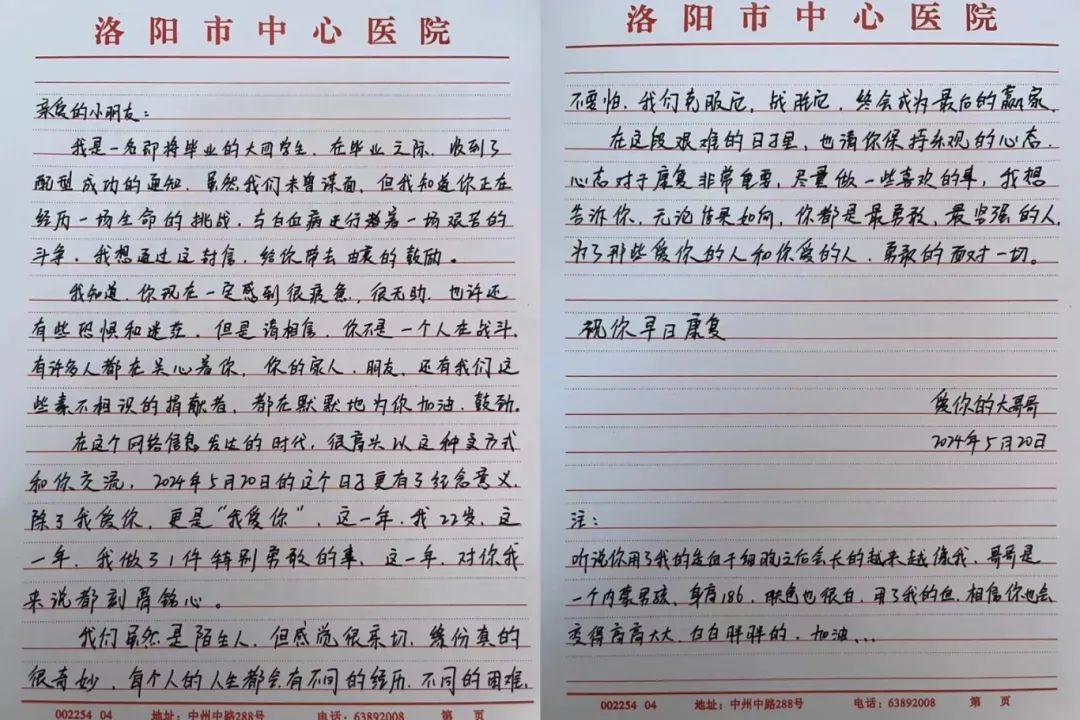 洛阳市中心医院
亲爱的小朋友：
我是一名即将毕业的大四学生，在毕业之际，收到了
配型成功的通知，虽然我们未曾谋面，但我知道你正在
经历一场生命的挑战，与白血病进行着一场艰苦的
斗争，我想通过这封信，给你带去由衷的鼓励。
我知道，你现在一定感到很疲惫，很无助，也许还
有些恐惧和迷茫，但是请相信，你不是一个人在战斗，
有许多人都在关心着你，你的家人、朋友，还有我们这
些素不相识的捐献者，都在默默地为你加油、鼓劲。
在这个网络信息发达的时代，很高兴以这种文方式
和你交流，2024年5月20日的这个日子更有了纪念意义，
除了我爱你，更是“我爱你”，这一年，我22岁，这
一年，我做了1件特别勇敢的事，这一年，对你我
来说都刻骨铭心。
我们虽然是陌生人，但感觉很亲切，缘份真的
很奇妙，每个人的人生都会有不同的经历，不同的困难，
002254 04 地址：中州中路288号 电话：63892008 第 页
洛阳市中心医院
不要怕，我们克服它，战胜它，终会成为最后的赢家，
在这段艰难的日子里，也请你保持乐观的心态，
心态对于康复非常重要，尽量做一些喜欢的事，我想
告诉你，无论结果如何，你都是最勇敢、最坚强的人，
为了那些爱你的人和你爱的人，勇敢的面对一切。
祝你早日康复
爱你的大哥哥
2024年5月20日
注：
听说你用了我的造血干细胞之后会长的越来越像我，哥哥是
一个内蒙男孩，身高186，肤色也很白，用了我的血，相信你也会
变得高高大大，白白胖胖的，加油...
002254 04 地址：中州中路288号 电话：63892008 第 页